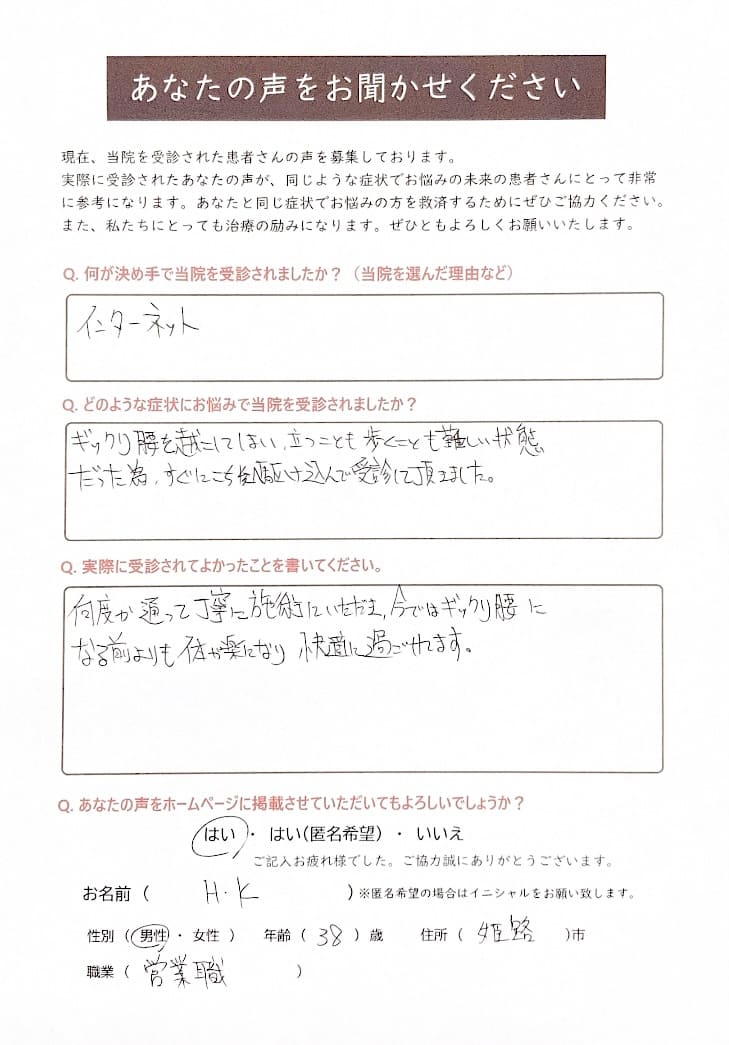 あなたの声をお聞かせください
現在、当院を受診された患者さんの声を募集しております。
実際に受診されたあなたの声が、同じような症状でお悩みの未来の患者さんにとって非常
に参考になります。あなたと同じ症状でお悩みの方を救済するためにぜひご協力ください。
また、私たちにとっても治療の励みになります。ぜひともよろしくお願いいたします。
Q. 何が決め手で当院を受診されましたか？（当院を選んだ理由など）
インターネット
Q. どのような症状にお悩みで当院を受診されましたか？
ギックリ腰を起こしてしまい、立つことも歩くことも難しい状態
だった為、すぐにこちらに駆け込んで受診して頂きました。
Q. 実際に受診されてよかったことを書いてください。
何度か通って丁寧に施術していただき、今ではギックリ腰に
なる前よりも体が楽になり 快適に過ごせてます。
Q. あなたの声をホームページに掲載させていただいてもよろしいでしょうか？
はい ・ はい（匿名希望） ・ いいえ
ご記入お疲れ様でした。ご協力誠にありがとうございます。
お名前（ H・K ）※匿名希望の場合はイニシャルをお願い致します。
性別（ 男性 ・ 女性 ） 年齢（ 38 ）歳 住所（ 姫路 ）市
職業（ 営業職 ）